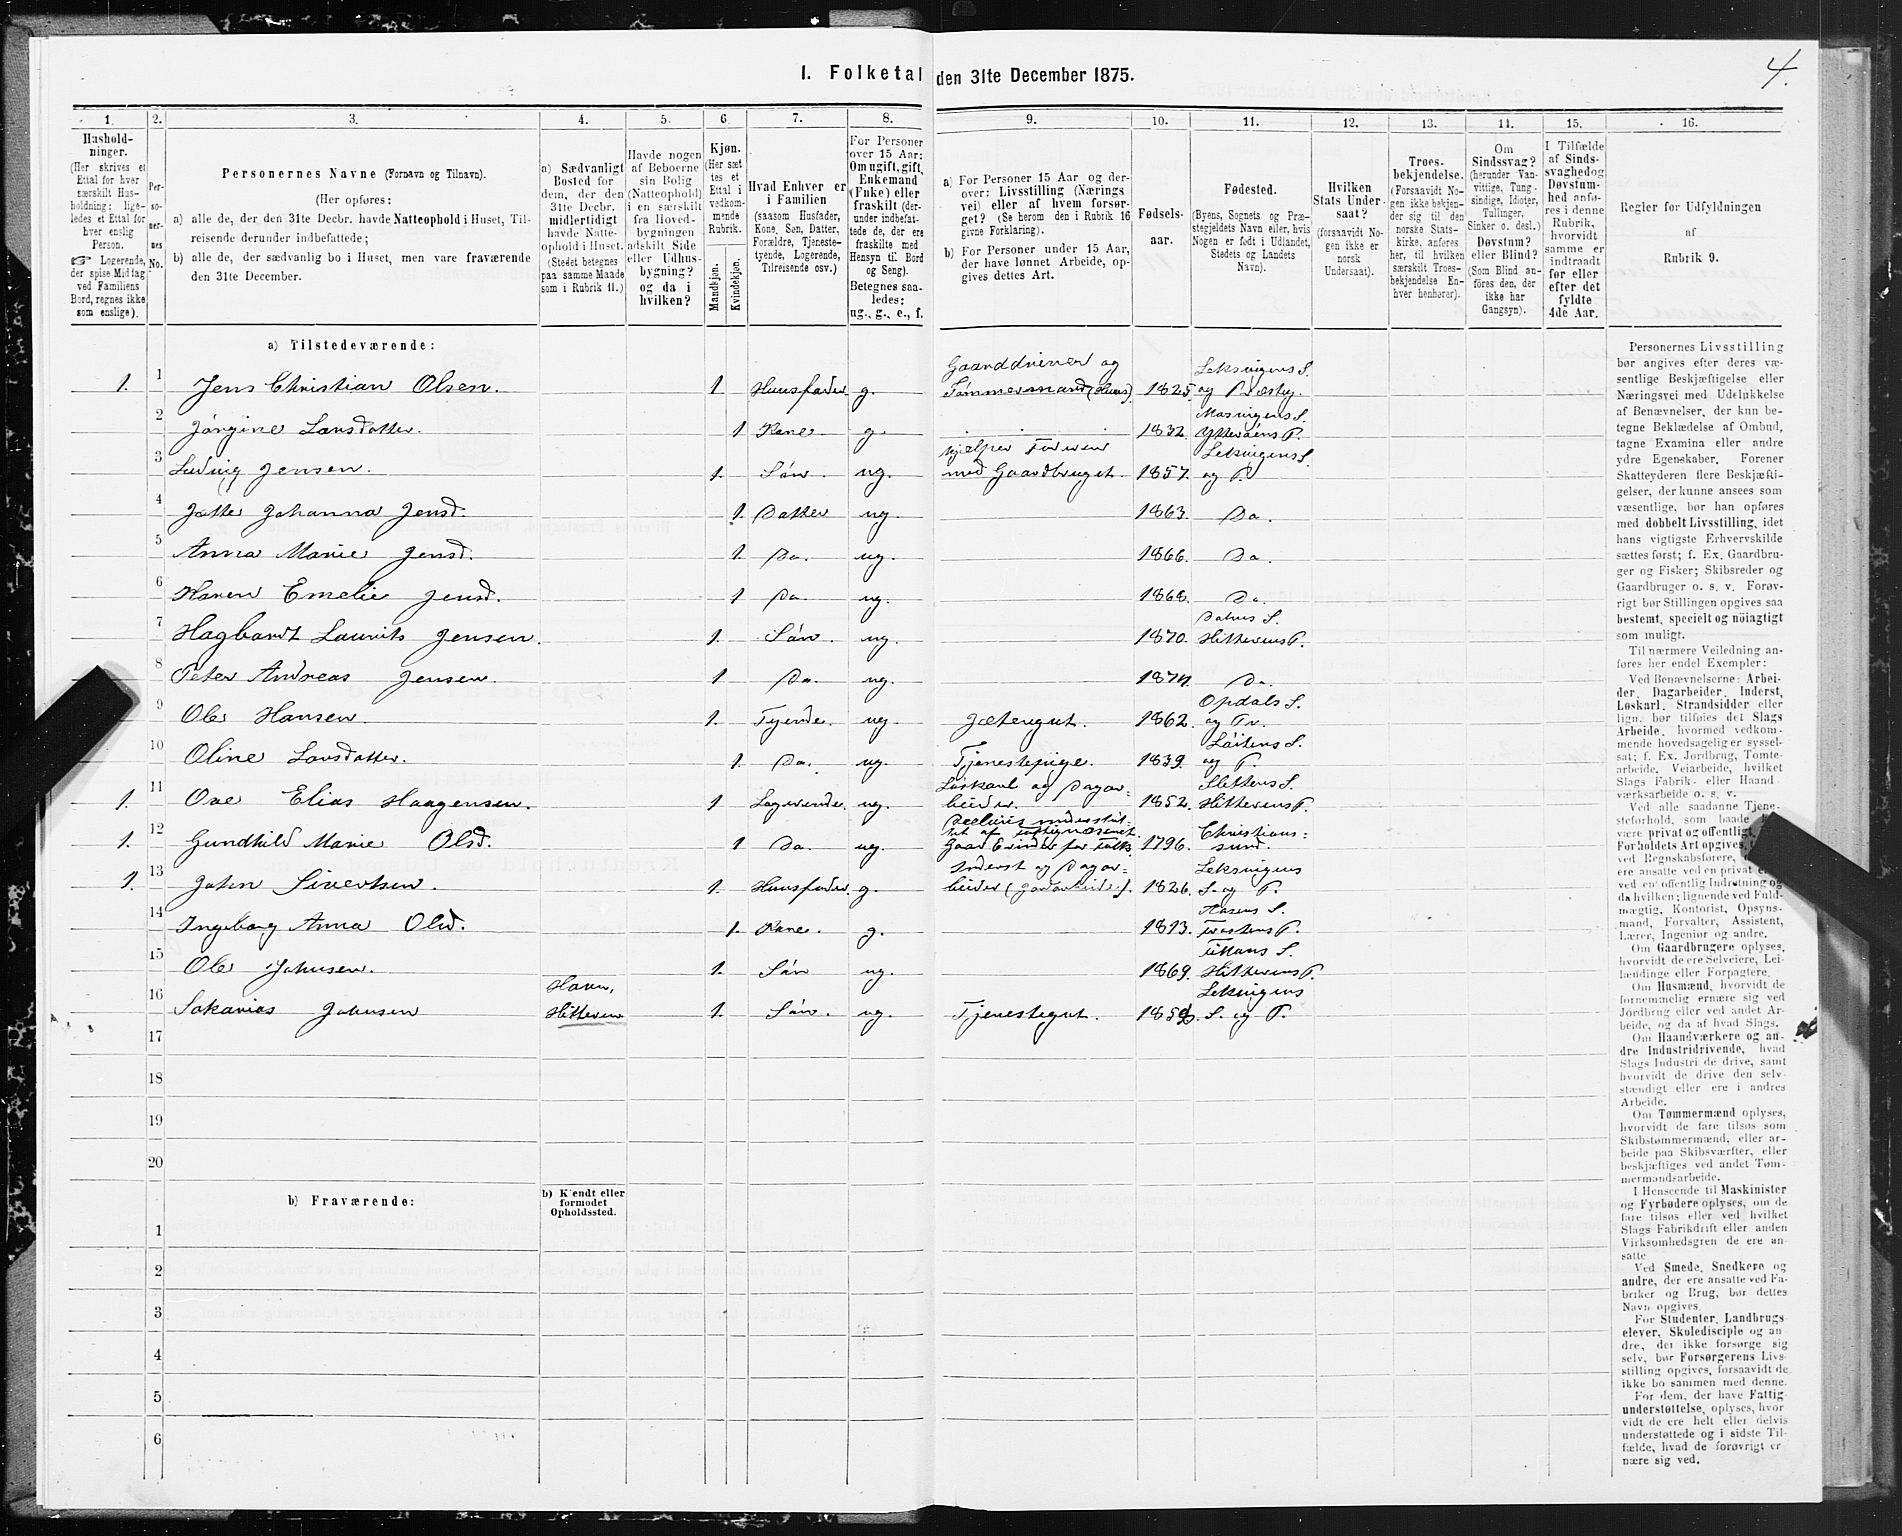 I. Folketal den 31te December 1875.
4.
1.
Husholdninger.
(Her skrives et
Ettal for hver
særskilt Husholdning; ligeledes
et Ettal for
hver enslig
Person.
☞ Logerende,
der spise Middag
ved Familiens
Bord, regnes ikke
som enslige).
2.
Personernes
No.
3.
Personernes Navne (Fornavn og Tilnavn).
(Her opføres:
a) alle de, der den 31te Decbr. havde Natteophold i Huset, Tilreisende
derunder indbefattede;
b) alle de, der sædvanlig bo i Huset, men vare fraværende
den 31te December.
4.
a) Sædvanligt
Bosted for
dem, der den
31te Decbr.
midlertidigt
havde Natteophold
i Huset.
(Stedet betegnes
paa samme Maade
som i Rubrik 11.)
5.
Havde nogen
af Beboerne
sin Bolig
(Natteophold)
i en særskilt
fra Hovedbygningen
adskilt Side
eller Udhusbygning?
og da i
hvilken?
6.
Kjøn.
(Her sættes
et
Ettal i
vedkommende
Rubrik.
Mandkjøn.
Kvindekjøn.
7.
Hvad Enhver er
i Familien
(saasom Husfader,
Kone, Søn, Datter,
Forældre, Tjenestetyende,
Logerende,
Tilreisende osv.)
8.
For Personer
over 15 Aar:
Om ugift, gift,
Enkemand
(Enke) eller
fraskilt (derunder
indbefattede
de, der ere
fraskilte med
Hensyn til Bord
og Seng).
Betegnes saaledes:
ug., g., e., f.
9.
a) For Personer 15 Aar og derover:
Livsstilling (Næringsvei)
eller af hvem forsørget?
(Se herom den i Rubrik 16
givne Forklaring).
b) For Personer under 15 Aar,
der have lønnet Arbeide, opgives
dettes Art.
10.
Fødselsaar.
11.
Fødested.
(Byens, Sognets og Præstegjeldets
Navn eller, hvis
Nogen er født i Udlandet,
Stedets og Landets
Navn).
12.
Hvilken
Stats Undersaat?
(forsaavidt Nogen
ikke er
norsk
Undersaat).
13.
Troesbekjendelse.
(Forsaavidt Nogen
ikke bekjender
sig til den
norske Statskirke,
anføres
her, til hvilken
særskilt Troesbekjendelse
Enhver
henhører).
14.
Om
Sindssvag?
(herunder Vanvittige,
Tungsindige,
Idioter,
Tullinger,
Sinker o. desl.)
Døvstum?
eller Blind?
(Som Blind anføres
den, der
ikke har
Gangsyn).
15.
I Tilfælde
af Sindssvaghed
og
Døvstumhed
anføres
i denne
Rubrik,
hvorvidt
samme er
indtraadt
før eller
efter det
fyldte
4de Aar.
16.
Regler for Udfyldningen
af
Rubrik 9.
a) Tilstedeværende:
1. 1 Jens Christian Olsen. 1 Huusfader g. Gaarddriver og Tømmermand (Huus). 1825. Leksvigens S. og Præstg.
2 Jørgine Larsdatter. 1 Kone. g. 1832. Mosvigens S. Ytterøens P.
3 Ludvig Jensen. 1. Søn. ug. hjælper Faderen med Gaardbruget. 1857. Leksvigens S. og P.
4 Jette Johanna Jensd. 1. Datter ug. 1863. Do.
5 Anna Marie Jensd. 1. Do. ug. 1866. Do.
6 Karen Emelie Jensd. 1 Do. ug. 1868. Do.
7 Hagbardt Laurits Jensen. 1. Søn. ug. 1870. Dolms S. Hitterens P.
8 Peter Andreas Jensen. 1 Do. ug. 1874. Do.
9 Ole Hansen. 1. Tyende. ug. Jætergut. 1862. Opdals S. og Pr.
10 Oline Larsdatter. 1. Do. ug. Tjenestepige. 1839. Løitens S. og P.
1. 11 Ove Elias Haagensen. 1 Logerende. ug. Løskarl og Dagarbeider. 1852. Hitterens P.
1. 12 Gundhild Marie Olsd. 1 Do. ug. Deelviis understøttet af Fattigvæsenet. Gaar Erinder for Folk. 1796. Christianssund.
1. 13 John Sivertsen. 1. Huusfader g. Inderst og Dagarbeider (Jordarbeide). 1826. Leksvigens S. og P.
14 Ingeborg Anna Olsd. 1. Kone. g. 1813. Aasens S. P.
15 Ole Johnsen. 1. Søn ug. 1869. Fillans S. Hitterens P.
16 Sakarias Johnsen Havn, Hitteren 1. Søn. ug. Tjenestegut. Leksvigens S. og P.
17
18
19
20
b) Fraværende:
b) Kjendt eller
formodet
Opholdssted.
1
2
3
4
5
6
Personernes Livsstilling
bør angives efter deres væsentlige
Beskjæftigelse eller
Næringsvei med Udelukkelse
af Benævnelser, der kun betegne
Beklædelse af Ombud,
tagne Examina eller andre
ydre Egenskaber. Forener
Skatteyderen flere Beskjæftigelser,
der kunne ansees som
væsentlige, bør han opføres
med dobbelt Livsstilling, idet
hans vigtigste Erhvervskilde
sættes først; f. Ex. Gaardbruger
og Fisker; Skibsreder og
Gaardbruger o. s. v. Forøvrigt
bør Stillingen opgives saa
bestemt, specielt og nøiagtigt
som muligt.
Til nærmere Veiledning anføres
her endel Exempler:
Ved Benævnelserne: Arbeider,
Dagarbeider, Inderst,
Løskarl, Strandsidder eller
lign. bør tilføies det Slags
Arbeide, hvormed vedkommende
hovedsagelig er sysselsat;
f. Ex. Jordbrug, Tomtearbeide,
Veiarbeide, hvilket
Slags Fabrik- eller Haandværksarbeide
o. s. v.
Ved alle saadanne Tjenesteforhold,
som baade
være privat og offentlig,
Forholdets Art opgives,
ved Regnskabsførere,
ere ansatte ved en privat
ved en offentlig Indretning og
da hvilken; lignende ved Fuldmægtig,
Kontorist, Opsynsmand,
Forvalter, Assistent,
Lærer, Ingeniør og andre.
Om Gaardbrugere oplyses,
hvorvidt de ere Selveiere, Leilændinge
eller Forpagtere.
Om Husmænd, hvorvidt de
fornemmelig ernære sig ved
Jordbrug eller ved andet Arbeide,
og da af hvad Slags.
Om Haandværkere og andre
Industridrivende, hvad
Slags Industri de drive, samt
hvorvidt de drive den selvstændigt
eller ere i andres
Arbeide.
Om Tømmermænd oplyses,
hvorvidt de fare tilsøs som
Skibstømmermænd, eller arbeide
paa Skibsværfter, eller
beskjæftiges ved andet Tømmermandsarbeide.
I Henseende til Maskinister
og Fyrbødere oplyses, om de
fare tilsøs eller ved hvilket
Slags Fabrikdrift eller anden
Virksomhedsgren de ere ansatte.
Ved Smede, Snedkere og
andre, der ere ansatte ved Fabriker
og Brug, bør dettes
Navn opgives.
For Studenter, Landbrugselever,
Skoledisciple og andre,
der ikke forsørge sig
selv, bør Forsørgerens Livsstilling
opgives, forsaavidt de
ikke bo sammen med denne.
For dem, der have Fattigunderstøttelse,
oplyses, hvorvidt
de ere helt eller delvis
understøttede og i sidste Tilfælde,
hvad de forøvrigt ernære
sig ved.